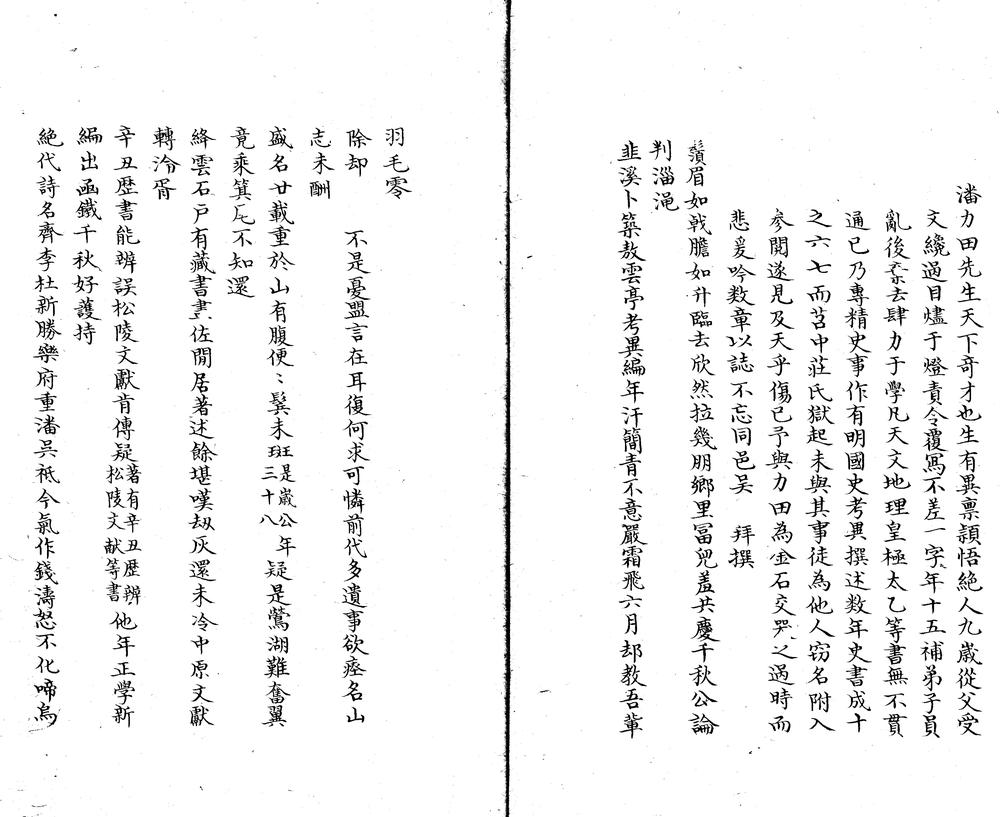 潘力田先生天下奇才也生有異禀頴悟絶人九歲從父受
文纔過目燼于燈責令覆寫不差一字年十五補弟子員
亂後棄去肆力于學凡天文地理皇極太乙等書無不貫
通已乃專精史事作有明國史考異撰述数年史書成十
之六七而苕中莊氏獄起未與其事徒為他人窃名附入
參閲遂見及天乎傷已予與力田為金石交哭之過時而
悲爰吟数章以誌不忘同邑吴　拜撰
鬚眉如戟膽如升臨去欣然拉幾朋鄉里冨兒羞共慶千秋公論
判淄澠
韭溪卜築敖雲亭考異編年汗簡青不意嚴霜飛六月却教吾輩
羽毛零
除却　　不是憂盟言在耳復何求可憐前代多遺事欲瘞名山
志未酬
盛名廿載重於山有腹便〻鬓未斑是歲公年三十八疑是鶯湖難奮翼
竟乘箕尾不知還
絳雲石戸有藏書書佐閒居著述餘堪嘆刼灰還未冷中原文獻
轉淪胥
辛丑歴書能辨誤松陵文獻肯傳疑著有辛丑歴辨松陵文献等書他年正學新
編出函鐵千秋好護持
絶代詩名齊李杜新勝樂府重潘吴袛今氣作錢濤怒不化啼烏